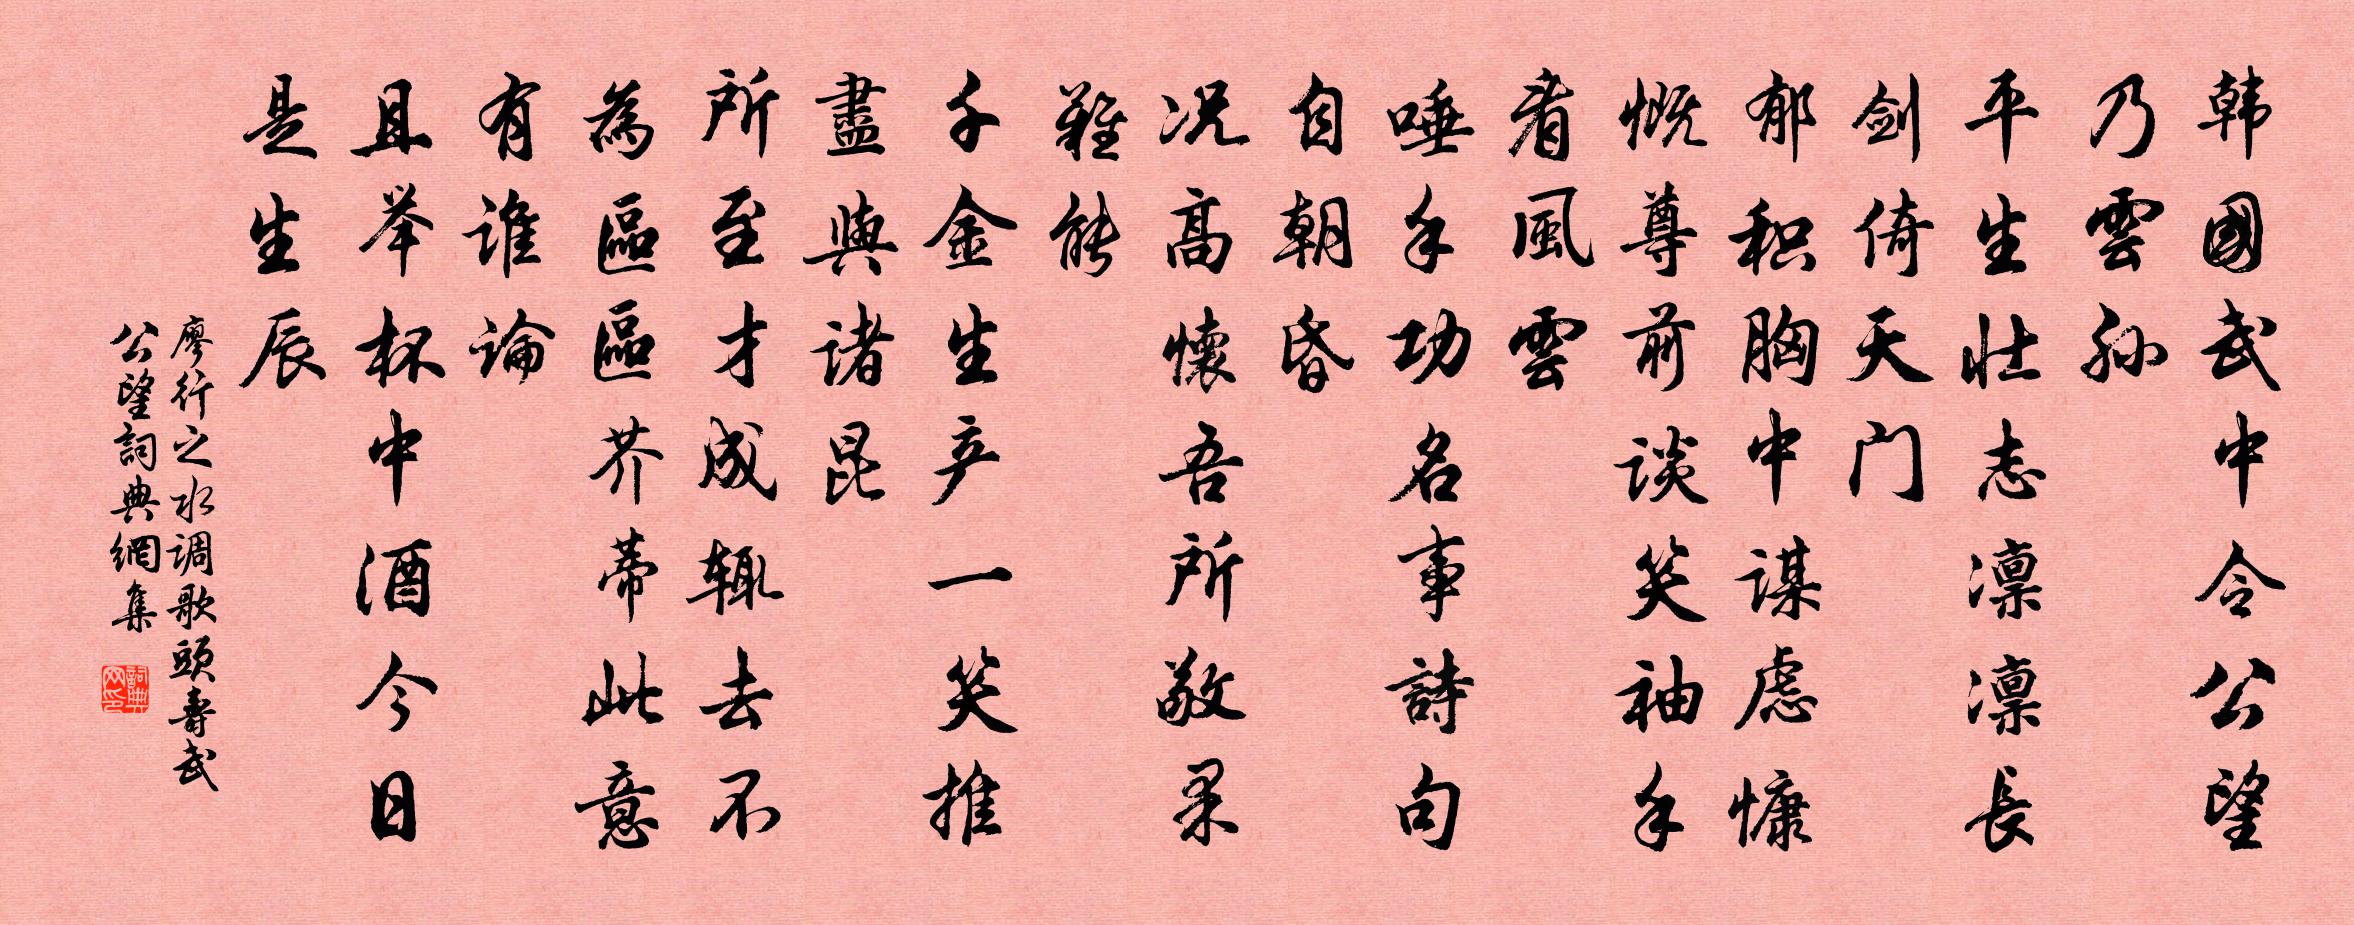 韩國武中令公望
乃雲孙
平生壮志凛凛長
剑倚天门
郁积胸中谋虑慷
慨尊前谈笑袖手
看風雲
唾手功名事詩句
自朝昏
况高懷吾所敬果
難能
千金生产一笑推
盡與诸昆
所至才成辄去不
為區區芥蒂此意
有谁论
且举杯中酒今日
是生辰
廖行之水调歌頭壽武
公望詞典網集
詞典
网印